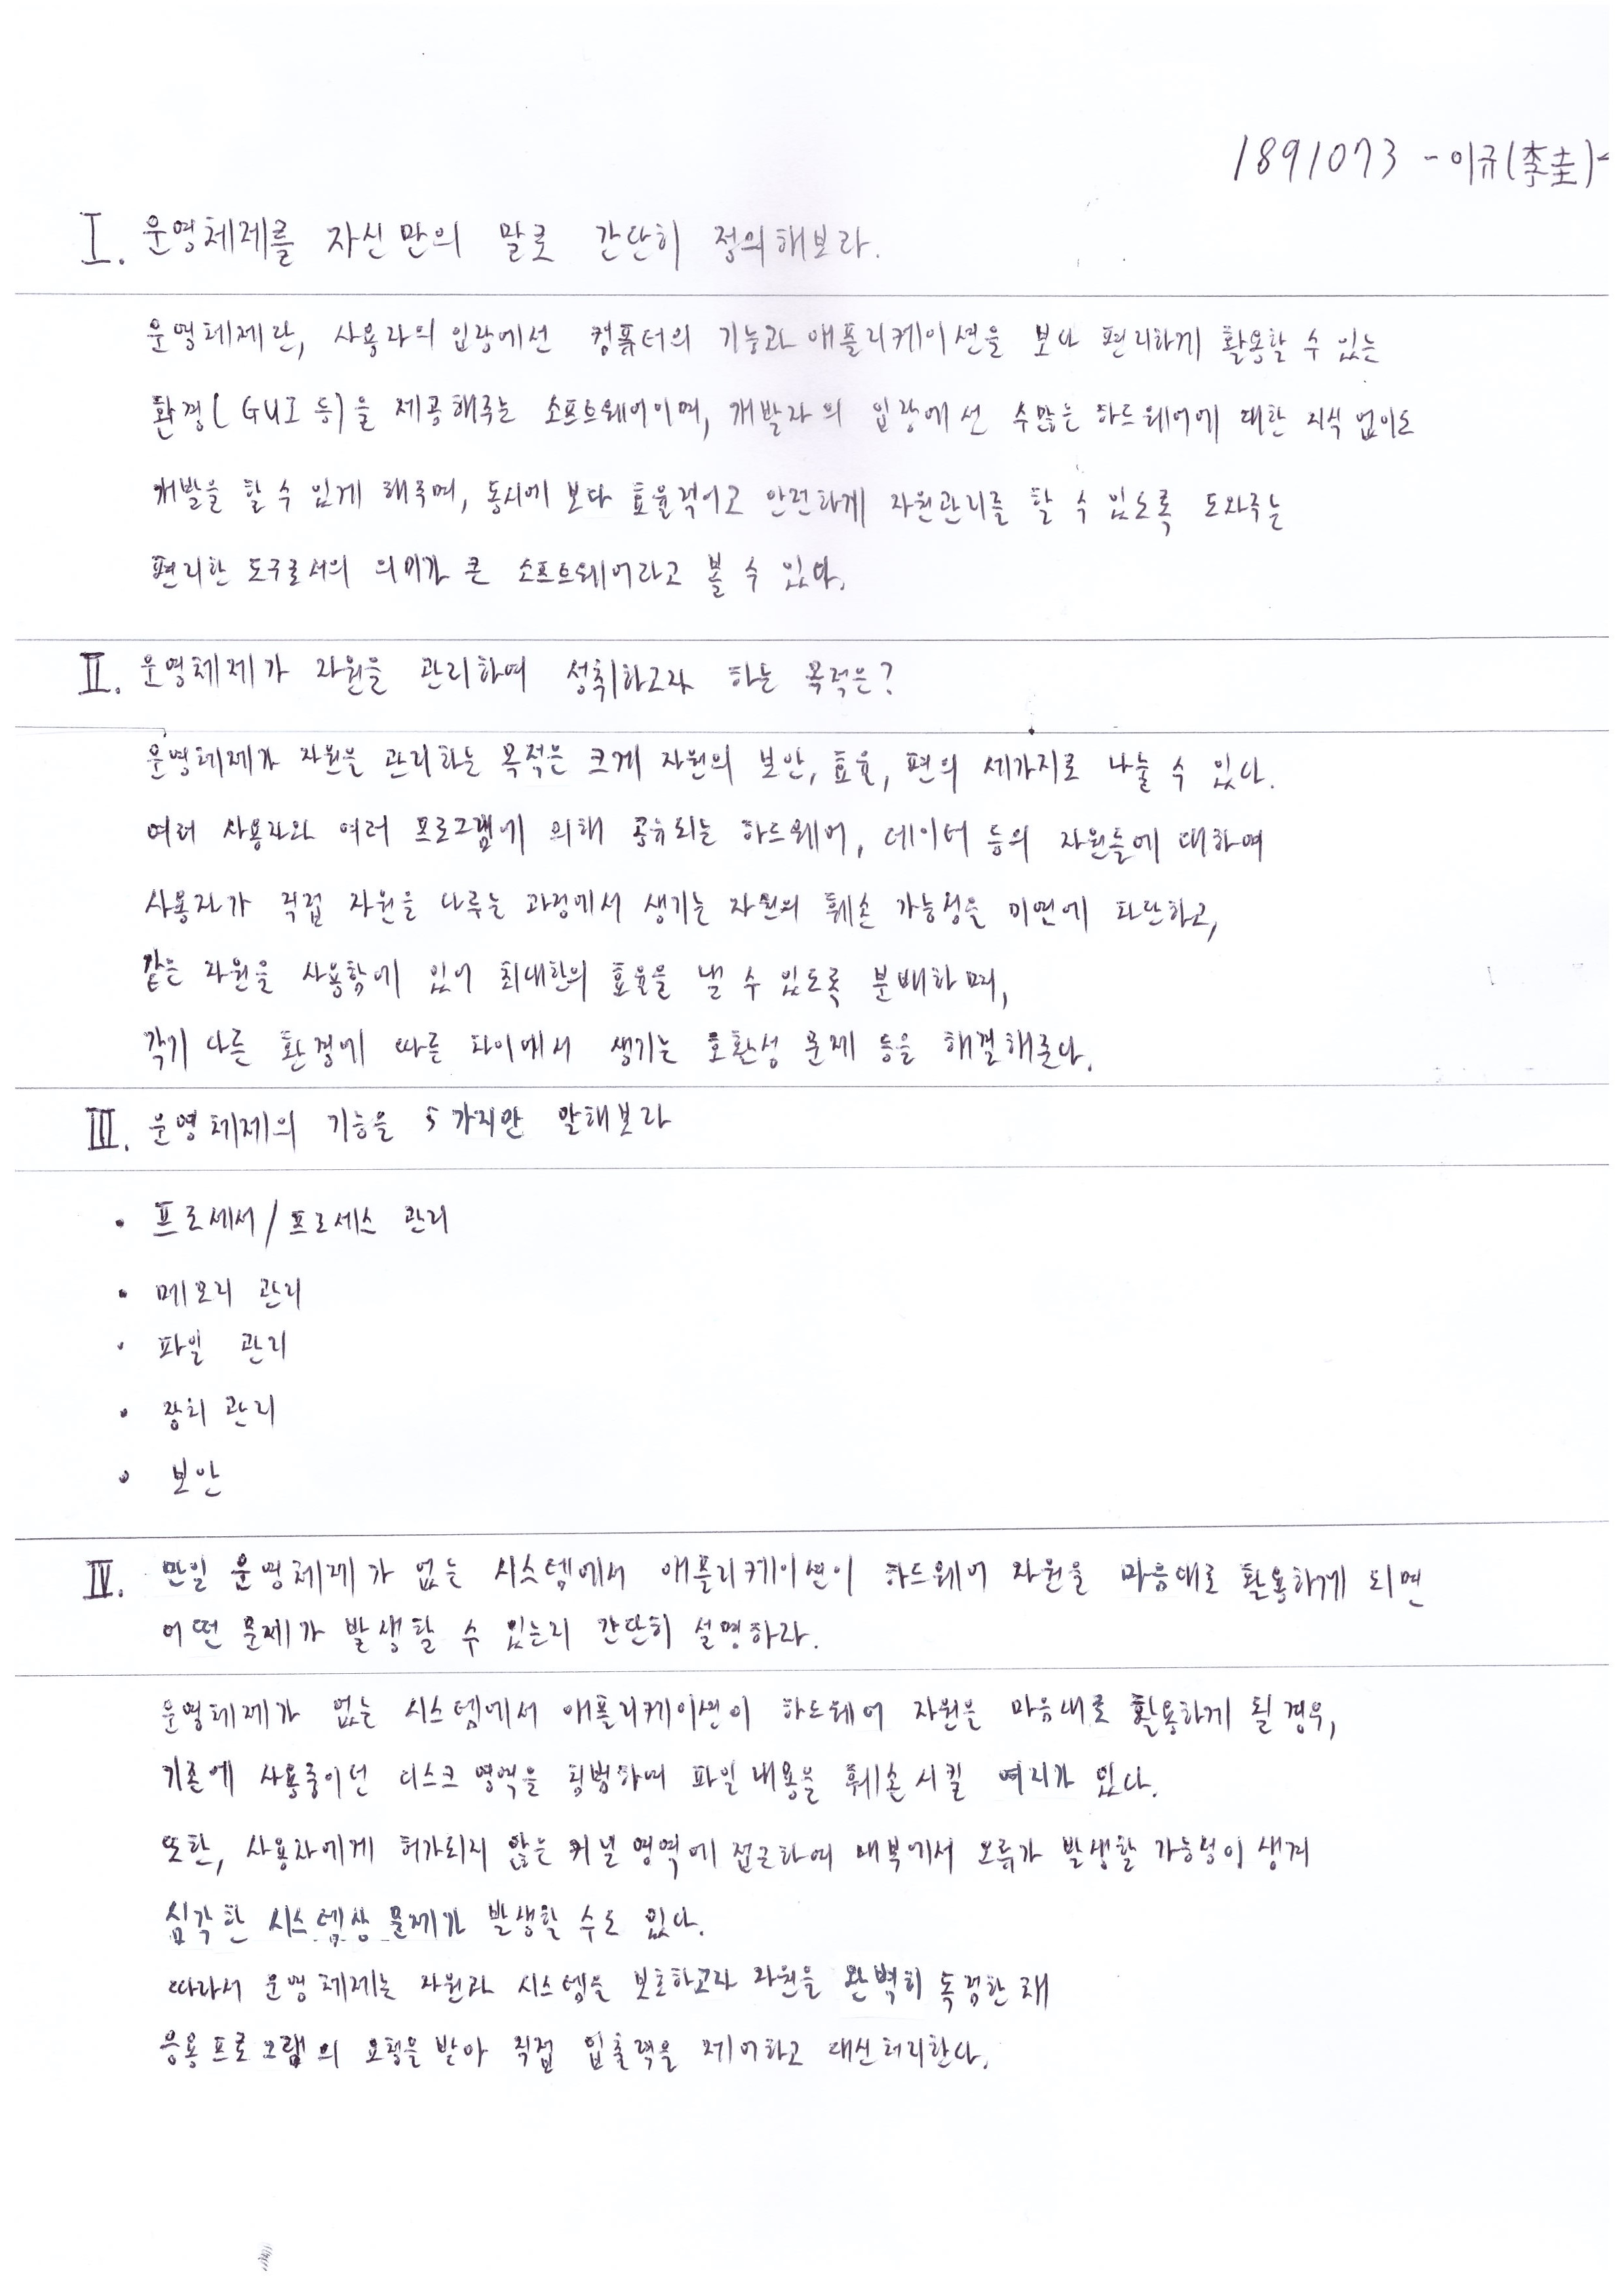 1891073 - 이규(李圭)-
Ⅰ. 운영체제를 자신만의 말로 간단히 정의해보라.
운영체제란, 사용자의 입장에선 컴퓨터의 기능과 애플리케이션을 보다 편리하게 활용할 수 있는
환경(GUI 등)을 제공해주는 소프트웨어이며, 개발자의 입장에선 수많은 하드웨어에 대한 지식 없이도
개발을 할 수 있게 해주며, 동시에 보다 효율적이고 안전하게 자원관리를 할 수 있도록 도와주는
편리한 도구로서의 의미가 큰 소프트웨어라고 볼 수 있다.
Ⅱ. 운영체제가 자원을 관리하여 성취하고자 하는 목적은?
운영체제가 자원을 관리하는 목적은 크게 자원의 보안, 효율, 편의 세가지로 나눌 수 있다.
여러 사용자와 여러 프로그램에 의해 공유되는 하드웨어, 데이터 등의 자원들에 대하여
사용자가 직접 자원을 다루는 과정에서 생기는 자원의 훼손 가능성을 미연에 차단하고,
같은 자원을 사용함에 있어 최대한의 효율을 낼 수 있도록 분배하며,
각기 다른 환경에 따른 차이에서 생기는 호환성 문제 등을 해결해준다.
Ⅲ. 운영체제의 기능을 5가지만 말해보라
• 프로세서/프로세스 관리
• 메모리 관리
• 파일 관리
• 장치 관리
• 보안
Ⅳ. 만일 운영체제가 없는 시스템에서 애플리케이션이 하드웨어 자원을 마음대로 활용하게 되면
어떤 문제가 발생할 수 있는지 간단히 설명하라.
운영체제가 없는 시스템에서 애플리케이션이 하드웨어 자원을 마음대로 활용하게 될 경우,
기존에 사용중이던 디스크 영역을 침범하여 파일 내용을 훼손시킬 여지가 있다.
또한, 사용자에게 허가되지 않는 커널 영역에 접근하여 내부에서 오류가 발생할 가능성이 생겨
심각한 시스템상 문제가 발생할 수도 있다.
따라서 운영체제는 자원과 시스템을 보호하고자 자원을 완벽히 독점한 채
응용프로그램의 요청을 받아 직접 입출력을 제어하고 대신처리한다.